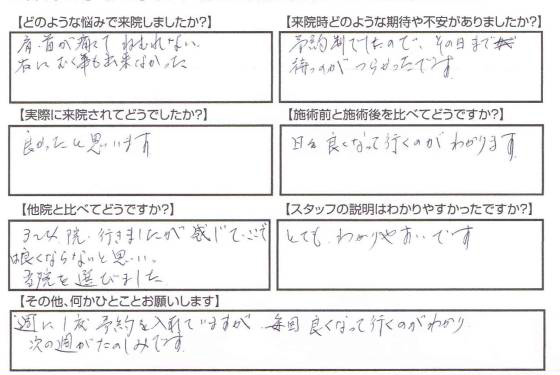 【どのような悩みで来院しましたか?】
肩・首が痛くて ねむれない。
右にむく事も出来なかった
【来院時どのような期待や不安がありましたか?】
予約制でしたので、その日まで
待つのが つらかったです。
【実際に来院されてどうでしたか?】
良かったと思います
【施術前と施術後を比べてどうですか?】
日々 良くなって行くのが わかります。
【他院と比べてどうですか?】
院、行きましたが 感じて
は良くならないと思い、
院を選びました
【スタッフの説明はわかりやすかったですか?】
とても、わかりやすいです
【その他、何かひとことお願いします】
週に1度 予約を入れていますが 毎回 良くなって行くのがわかり
次の週がたのしみです。